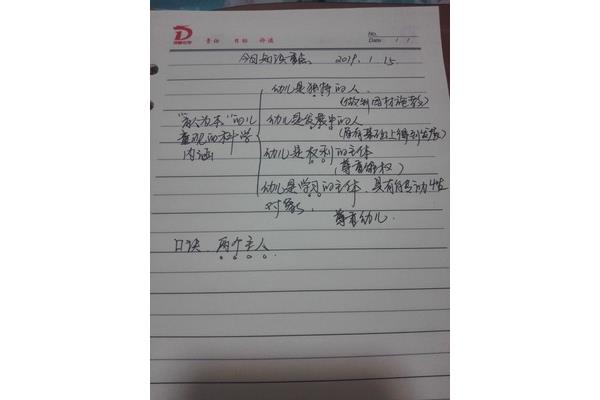 责任 目标 沟通
No.
Date / /
今日知识重点、 2019.1.15
幼儿是独特的人.
(做到因材施教)
"育人为本"的儿
幼儿是发展中的人
(原有基础上得到发展)
童观的科学
幼儿是权利的主体
内涵
(尊重维权)
幼儿是学习的主体、具有能动性
对象、
尊重幼儿.
口诀、两个主人